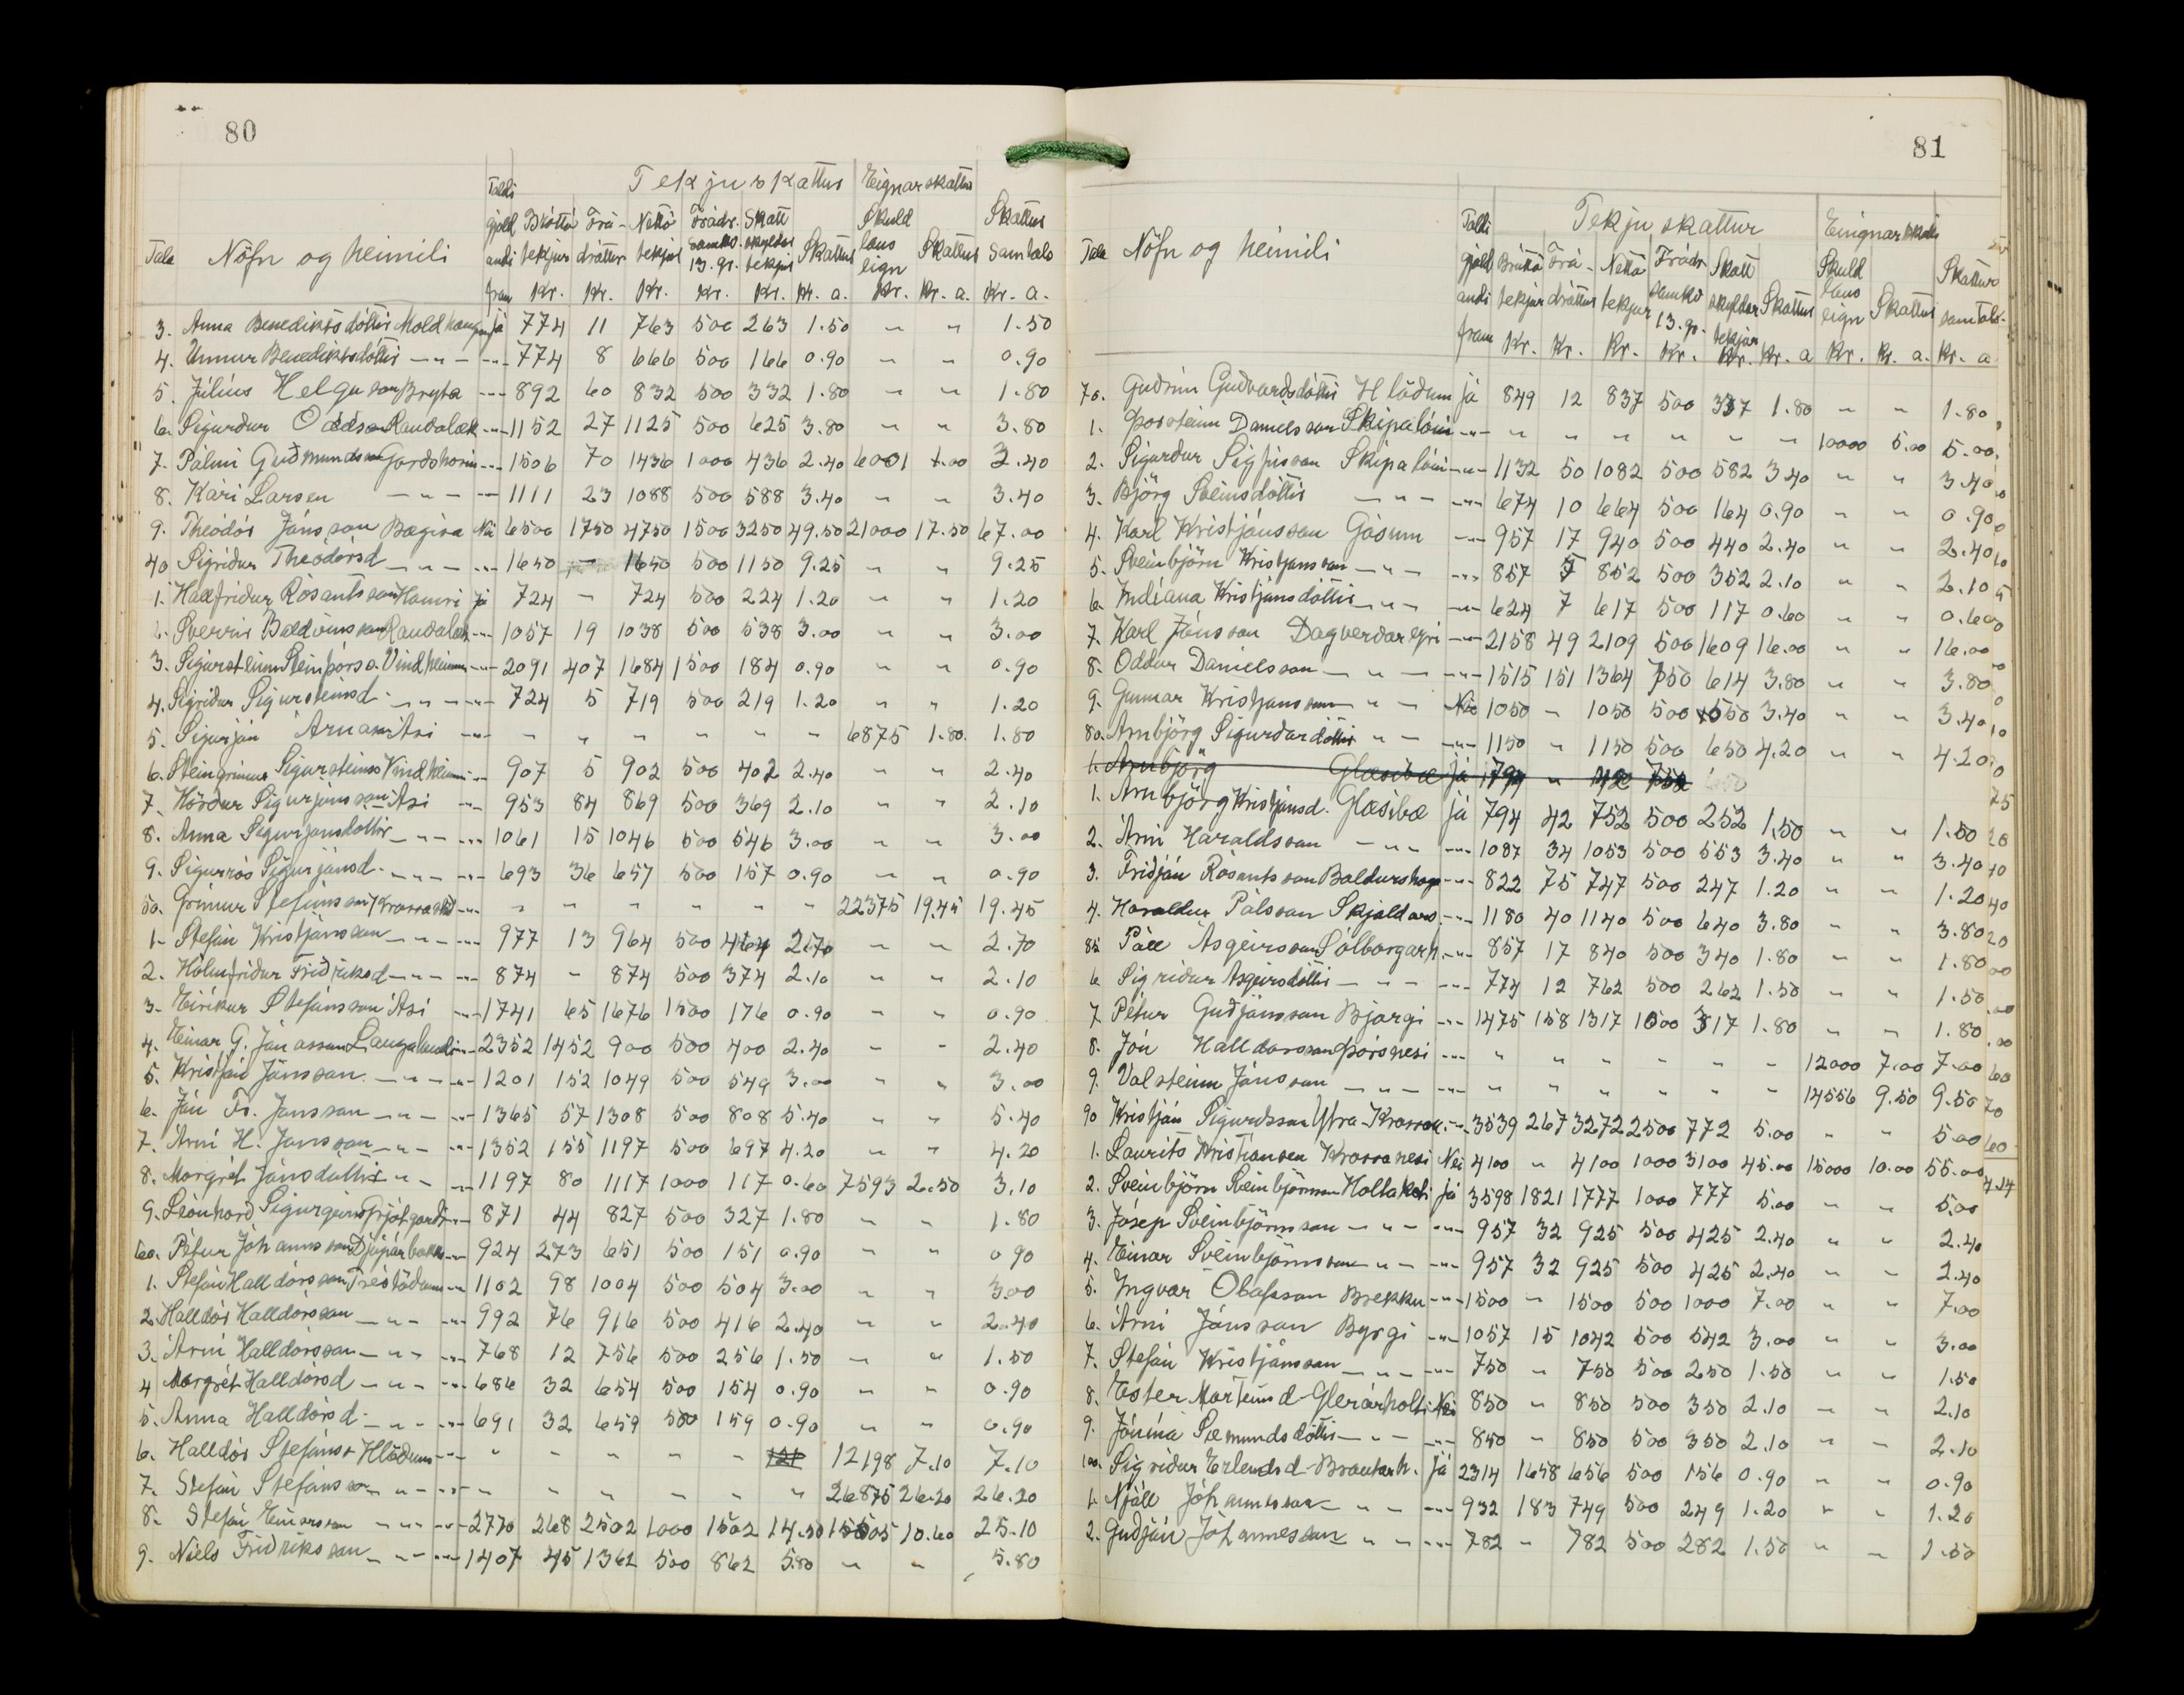 80
Tekjuskattur Eignarskattur
Tala Nöfn og heimili Taldi gjald andi fram Brúttó tekjur Kr. Frá-dráttur Kr. Nettó tekjur Kr. Frádr. samkv. 13. gr. Kr. Skatt skyldar tekjur Kr. Skattur Kr. a. Skuld laus eign Kr. Skattur Kr. a. Skattur samtals Kr. a.
3. Anna Benediktsdóttir Moldhaugum já 774 11 763 500 263 1.50 " " 1.50
4. Unnur Benediktsdóttir — " — -"- 774 8 666 500 166 0.90 " " 0.90
5. Júlíus Helgason Bryta -"- 892 60 832 500 332 1.80 " " 1.80
6. Sigurður Oddson Rauðalæk -"- 1152 27 1125 500 625 3.80 " " 3.80
7. Pálmi Guðmundsson Garðshorni -"- 1506 70 1436 1000 436 2.40 6001 1.00 3.40
8. Kári Larsen — " — -"- 1111 23 1088 500 588 3.40 " " 3.40
9. Theódór Jónsson Bægisá Nei 6500 1750 4750 1500 3250 49.50 21000 17.50 67.00
40 Sigríður Theódórsd — " — -"- 1650 — 1650 500 1150 9.25 " " 9.25
1. Hallfríður Rósantsson Hamri já 724 — 724 500 224 1.20 " " 1.20
2. Sverrir Baldvinsson Rauðalæk -"- 1057 19 1038 500 538 3.00 " " 3.00
3. Sigursteinn Steinþórss. Vindheimum -"- 2091 407 1684 1500 184 0.90 " " 0.90
4. Sigríður Sigursteinsd. — " — -"- 724 5 719 500 219 1.20 " " 1.20
5. Sigurjón Árnason Ási -"- " " " " " " 6875 1.80 1.80
6. Steingrímur Sigursteinss Vindheim -"- 907 5 902 500 402 2.40 " " 2.40
7. Hörður Sigurjónsson Ási -"- 953 84 869 500 369 2.10 " " 2.10
8. Anna Sigurjónsdóttir — " — -"- 1061 15 1046 500 546 3.00 " " 3.00
9. Sigurrós Sigurjónsd. — " — -"- 693 36 657 500 157 0.90 " " 0.90
50. Grímur Stefánsson Krossastöð -"- " " " " " " 22375 19.45 19.45
1. Stefán Kristjánsson — " — -"- 977 13 964 500 464 2.70 " " 2.70
2. Hólmfríður Friðriksd — " — -"- 874 " 874 500 374 2.10 " " 2.10
3. Eiríkur Stefánsson Ási -"- 1741 65 1676 1500 176 0.90 " " 0.90
4. Einar G. Jónasson Laugalandi -"- 2352 1452 900 500 400 2.40 " " 2.40
5. Kristján Jónsson — " — -"- 1201 152 1049 500 549 3.00 " " 3.00
6. Jón Fr. Jónsson — " — -"- 1365 57 1308 500 808 5.40 " " 5.40
7. Árni H. Jónsson — " — -"- 1352 155 1197 500 697 4.20 " " 4.20
8. Margrét Jónsdóttir " — -"- 1197 80 1117 1000 117 0.60 7593 2.50 3.10
9. Leónharð Sigurgeirss Grjótgarði -"- 871 44 827 500 327 1.80 " " 1.80
60. Pétur Jóhannsson Djúpárbakka -"- 924 273 651 500 151 0.90 " " 0 90
1. Stefán Halldórsson Tréstöðum -"- 1102 98 1004 500 504 3.00 " " 3.00
2. Halldór Halldórsson — " — -"- 992 76 916 500 416 2.40 " " 2.40
3. Árni Halldórsson — " — -"- 768 12 756 500 256 1.50 " " 1.50
4 Margrét Halldórsd — " — -"- 686 32 654 500 154 0.90 " " 0.90
5. Anna Halldórsd. — " — -"- 691 32 659 500 159 0.90 " " 0.90
6. Halldór Stefánss Hlöðum -"- " " " " " 121 12198 7.10 7.10
7. Stefán Stefánsson — " — -"- " " " " " " 26875 26.20 26.20
8. Stefán Einarsson — " — -"- 2770 268 2502 1000 1502 14.50 15505 10.60 25.10
9. Níels Friðriksson — " — -"- 1407 45 1362 500 862 5.80 " " 5.80
81
Tekjuskattur Eingnarskatti
Tala Nöfn og heimili Taldi gjald andi fram Brúttó tekjur Kr. Frá-dráttur Kr. Nettó tekjur Kr. Frádr samkv 13. gr. Kr. Skatt skyldar tekjur Kr. Skattur Kr. a Skuld laus eign Kr. Skattur Kr. a. Skattur samtals. Kr. a
70. Guðrún Guðvarðsdóttir Hlöðum já 849 12 837 500 337 1.80 " " 1.80
1. Þorsteinn Daníelsson Skipalóni -"- " " " " " " 10000 5.00 5.00
2. Sigurður Sigfússon Skipalóni -"- 1132 50 1082 500 582 3.40 " " 3.40
3. Björg Sveinsdóttir — " — -"- 674 10 664 500 164 0.90 " " 0.90
4. Karl Kristjánsson Gásum -"- 957 17 940 500 440 2.40 " " 2.40
5. Sveinbjörn Kristjánsson — " — -"- 857 5 852 500 352 2.10 " " 2.10
6. Indíana Kristjánsdóttir — " — -"- 624 7 617 500 117 0.60 " " 0.60
7. Karl Jónsson Dagverðareyri -"- 2158 49 2109 500 1609 16.00 " " 16.00
8. Oddur Daníelsson — " — -"- 1515 151 1364 750 614 3.80 " " 3.80
9. Gunnar Kristjánsson " — Nei 1050 " 1050 500 550 3.40 " " 3.40
80. Arnbjörg Sigurðardóttir " — -"- 1150 " 1150 500 650 4.20 " " 4.20
1. Arnbjörg Glæsibæ já 794 " 42 752
1. Arnbjörg Kristjánsd. Glæsibæ já 794 42 752 500 252 1.50 " " 1.50
2. Árni Haraldsson — " — -"- 1087 34 1053 500 553 3.40 " " 3.40
3. Friðján Rósantsson Baldurshaga -"- 822 75 747 500 247 1.20 " " 1.20
4. Haraldur Pálsson Skjaldarv. -"- 1180 40 1140 500 640 3.80 " " 3.80
85 Páll Ásgeirsson Sólborgarh. -"- 857 17 840 500 340 1.80 " " 1.80
6 Sigríður Asgeirsdóttir — " — -"- 774 12 762 500 262 1.50 " " 1.50
7 Pétur Guðjónsson Bjargi -"- 1475 158 1317 1000 317 1.80 " " 1.80
8. Jón Halldórsson Þórsnesi -"- " " " " " " 12000 7.00 7.00
9. Valsteinn Jónsson — " — -"- " " " " " " 14556 9.50 9.50
90 Kristján Sigurðsson Ytra-Krossan. -"- 3539 267 3272 2500 772 5.00 " " 5.00
1. Laurits Kristiansen Krossanesi Nei 4100 " 4100 1000 3100 45.00 15000 10.00 55.00
2. Sveinbjörn Sveinbjörnsson Holtakoti já 3598 1821 1777 1000 777 5.00 " " 5.00
3. Jósep Sveinbjörnsson — " — -"- 957 32 925 500 425 2.40 " " 2.40
4. Einar Sveinbjörnsson — " — -"- 957 32 925 500 425 2.40 " " 2.40
5. Ingvar Ólafsson Brekku -"- 1500 " 1500 500 1000 7.00 " " 7.00
6. Árni Jónsson Byrgi -"- 1057 15 1042 500 542 3.00 " " 3.00
7. Stefán Kristjánsson — " — -"- 750 " 750 500 250 1.50 " " 1.50
8. Ester Marteinsd Glerárholti Nei 850 " 850 500 350 2.10 " " 2.10
9. Jónína Sæmundsdóttir — " — -"- 850 " 850 500 350 2.10 " " 2.10
100. Sigríður Erlendsd Brautarh. já 2314 1658 656 500 156 0.90 " " 0.90
1. Njáll Jóhannesson — " — -"- 932 183 749 500 249 1.20 " " 1.20
2. Guðján Jóhannesson — " — -"- 782 " 782 500 282 1.50 " " 1.50